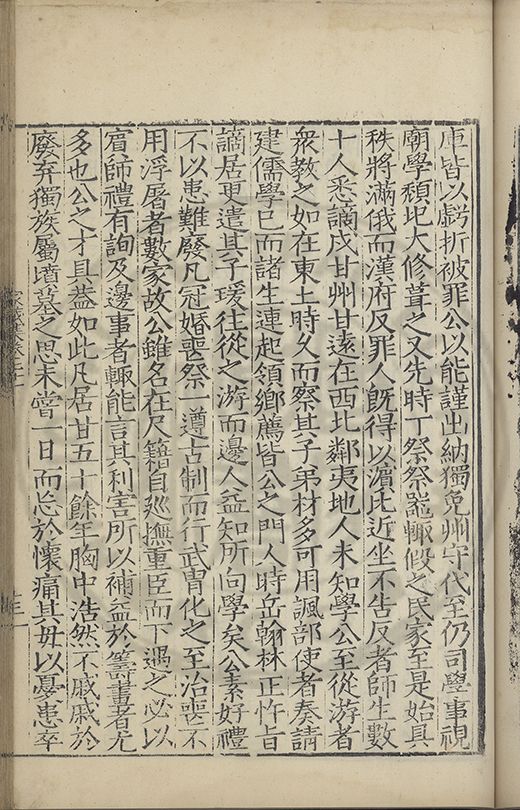 庫皆以虧折被罪公以能謹出納獨免州守代至仍司學事視
廟學頹圮大修葺之又先時丁祭祭噐輙假之民家至是始具
秩將滿俄而漢府反罪人旣得以濵比近坐不告反者師生數
十人悉謫戍甘州甘逺在西北鄰夷地人未知學公至從游者
衆教之如在東土時久而察其子弟材多可用諷部使者奏請
建儒學巳而諸生連起領鄉薦皆公之門人時岳翰林正忤旨
謫居更遣其子瑗往從之游而邊人益知所向學矣公素好禮
不以患難廢凡冠婚喪祭一遵古制而行武胄化之至治喪不
用浮屠者數家故公雖名在尺籍自巡撫重臣而下遇之必以
賔師禮有詢及邊事者輙能言其利害所以補益於籌畫者尤
多也公之才且益如此凡居甘五十餘年胸中浩然不戚戚於
廢弃獨族屬墳墓之思未嘗一日而忘於懷痛其母以憂患卒